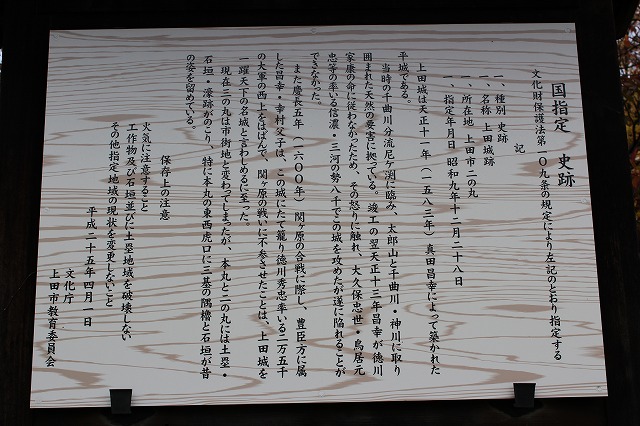 国指定　史跡
文化財保護法第一〇九条の規定により左記のとおり指定する
記
一、種別　史跡
一、名称　上田城跡
一、所在地　上田市二の丸
一、指定年月日　昭和九年十二月二十八日
上田城は天正十一年（一五八三年）真田昌幸によって築かれた
平城である。
当時の千曲川分流尼ケ渕に臨み、太郎山と千曲川・神川に取り
囲まれた天然の要害に拠っている。竣工の翌天正十三年昌幸が徳川
家康の命に従わなかったため、その怒りに触れ、大久保忠世・鳥居元
忠等の率いる信濃・三河の勢八千でこの城を攻めたが遂に陥れることが
できなかった。
また慶長五年（一六〇〇年）関ヶ原の合戦に際し、豊臣方に属
した昌幸・幸村父子は、この城にたて籠り徳川秀忠率いる二万五千
の大軍の西上をはばんで、関ヶ原の戦いに不参させたことは、上田城を
一躍天下の名城と言わしめるに至った。
現在三の丸は市街地と変わってしまったが、本丸と二の丸には土塁・
石垣・濠跡がのこり、特に本丸の東西虎口に三基の隅櫓と石垣が昔
の姿を留めている。
保存上の注意
火気に注意すること
工作物及び石垣並びに土塁地域を破壊しない
その他指定地域の現状を変更しないこと
平成二十五年四月一日
文化庁
上田市教育委員会